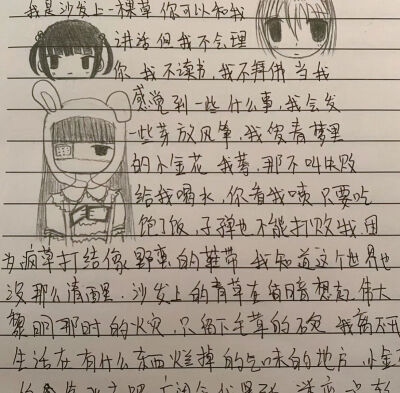 我是沙发上一棵草 你可以和我
讲话 但我不会理
你 我不读书,我不拜佛 当我
感觉到一些什么事,我会发
一些芽放风筝,我是青梦里
的小金花 我莠,那不叫失败
给我喝水,你看我咦 只要吃
饱了饭,子弹也不能打败我,因
为疯草打结像野蛮的鞋带 我知道这个世界他
没那么清醒.沙发上的青草在暗暗想起 伟大
黎明那时的火灾,只留下毛草的石 我离不开
生活在有什么东西烂掉的气味的地方 小金